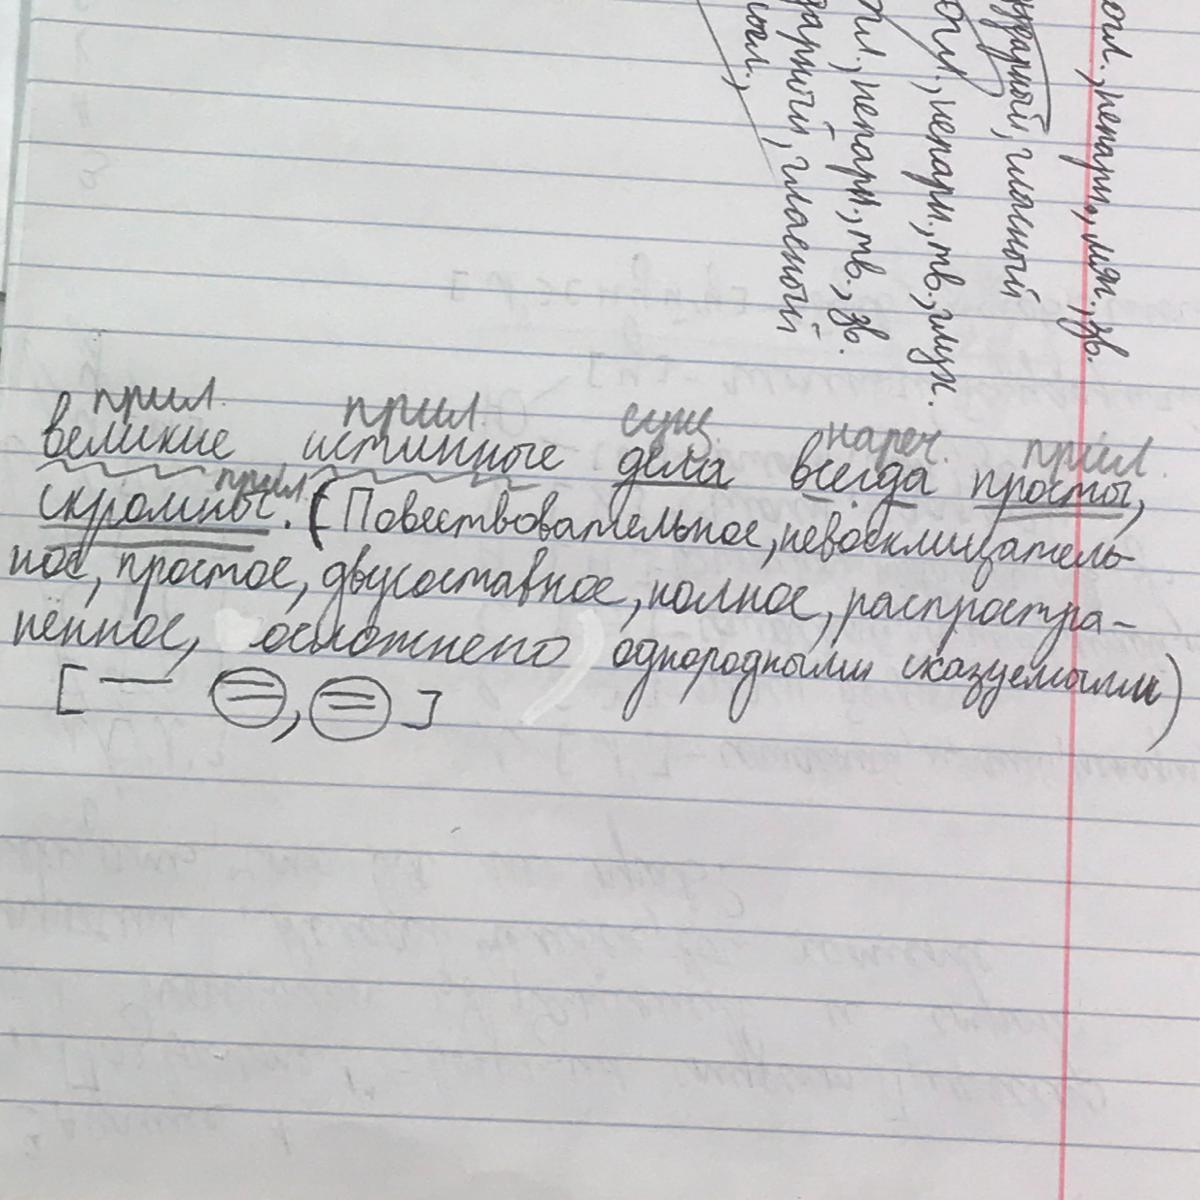 огл., непарн., мяг., зв.
ударный, гласный
огл., непарн., тв., глух.
огл., непарн., тв., зв.
дарный, гласный
огл.,
прил. прил. сущ. нареч. прил.
великие истинные дела всегда просты,
прил.
скромны. (Повествовательное, невосклицатель-
ное, простое, двусоставное, полное, распростра-
нённое, осложнено однородными сказуемыми)
[— =, =]